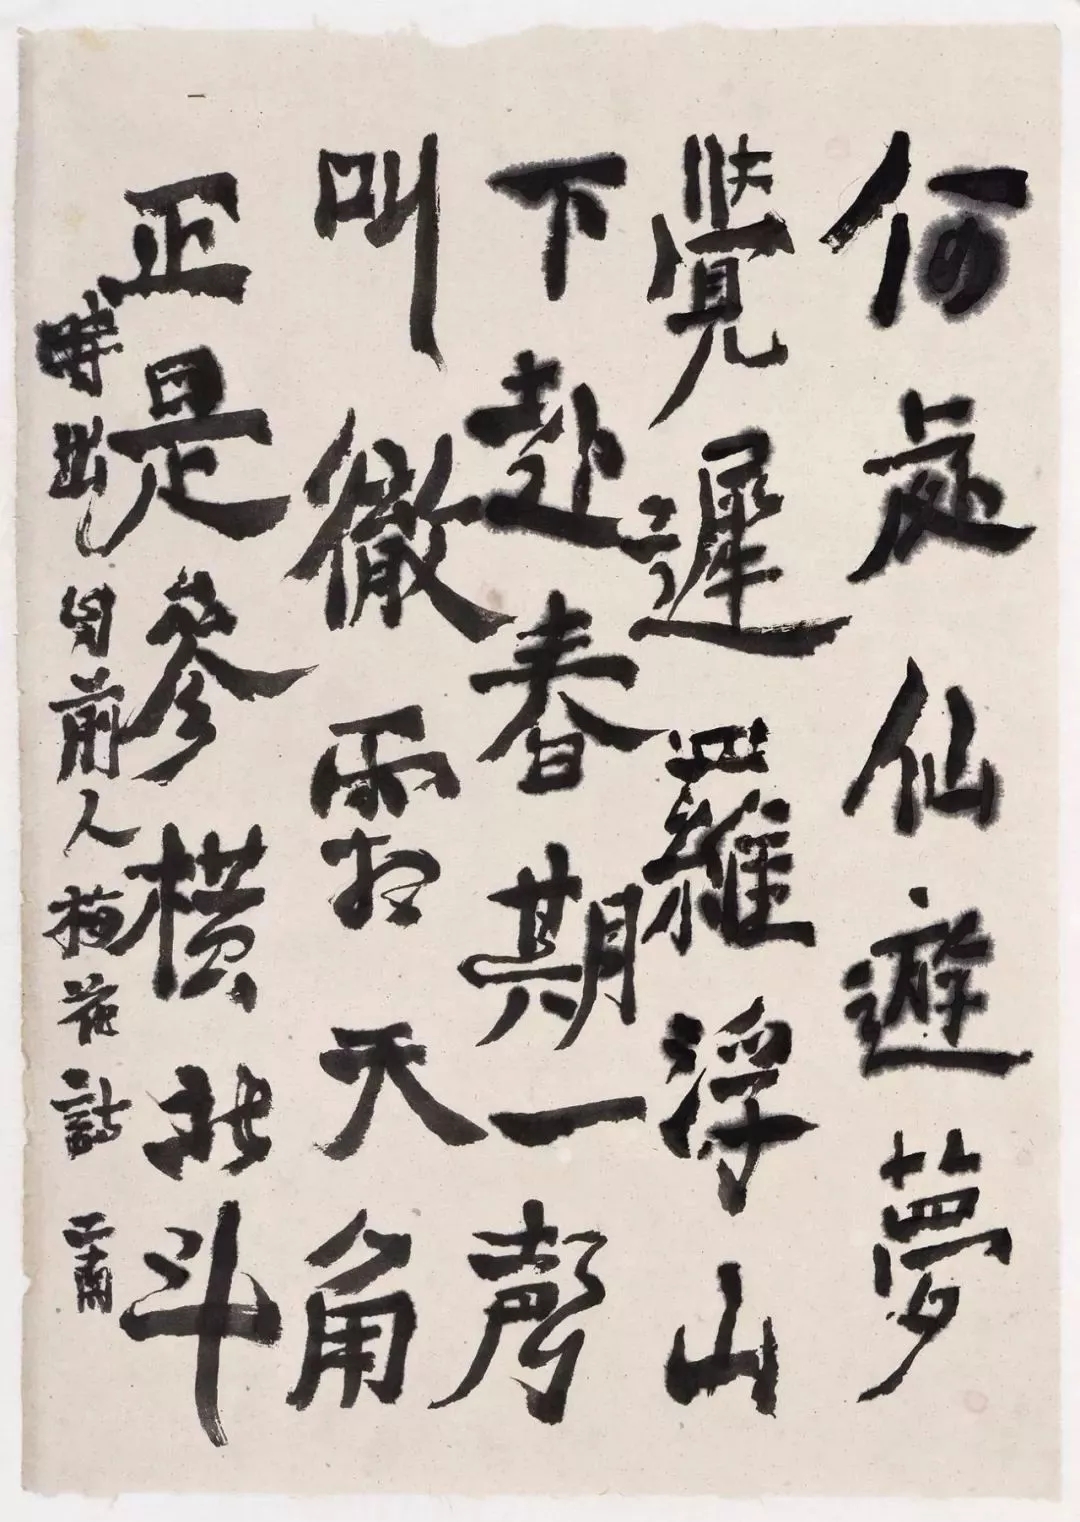 何處仙遊夢
覺遲羅浮山
下赴春期一聲
叫徹霜天角
正是參橫北斗
時 前人梅花詩